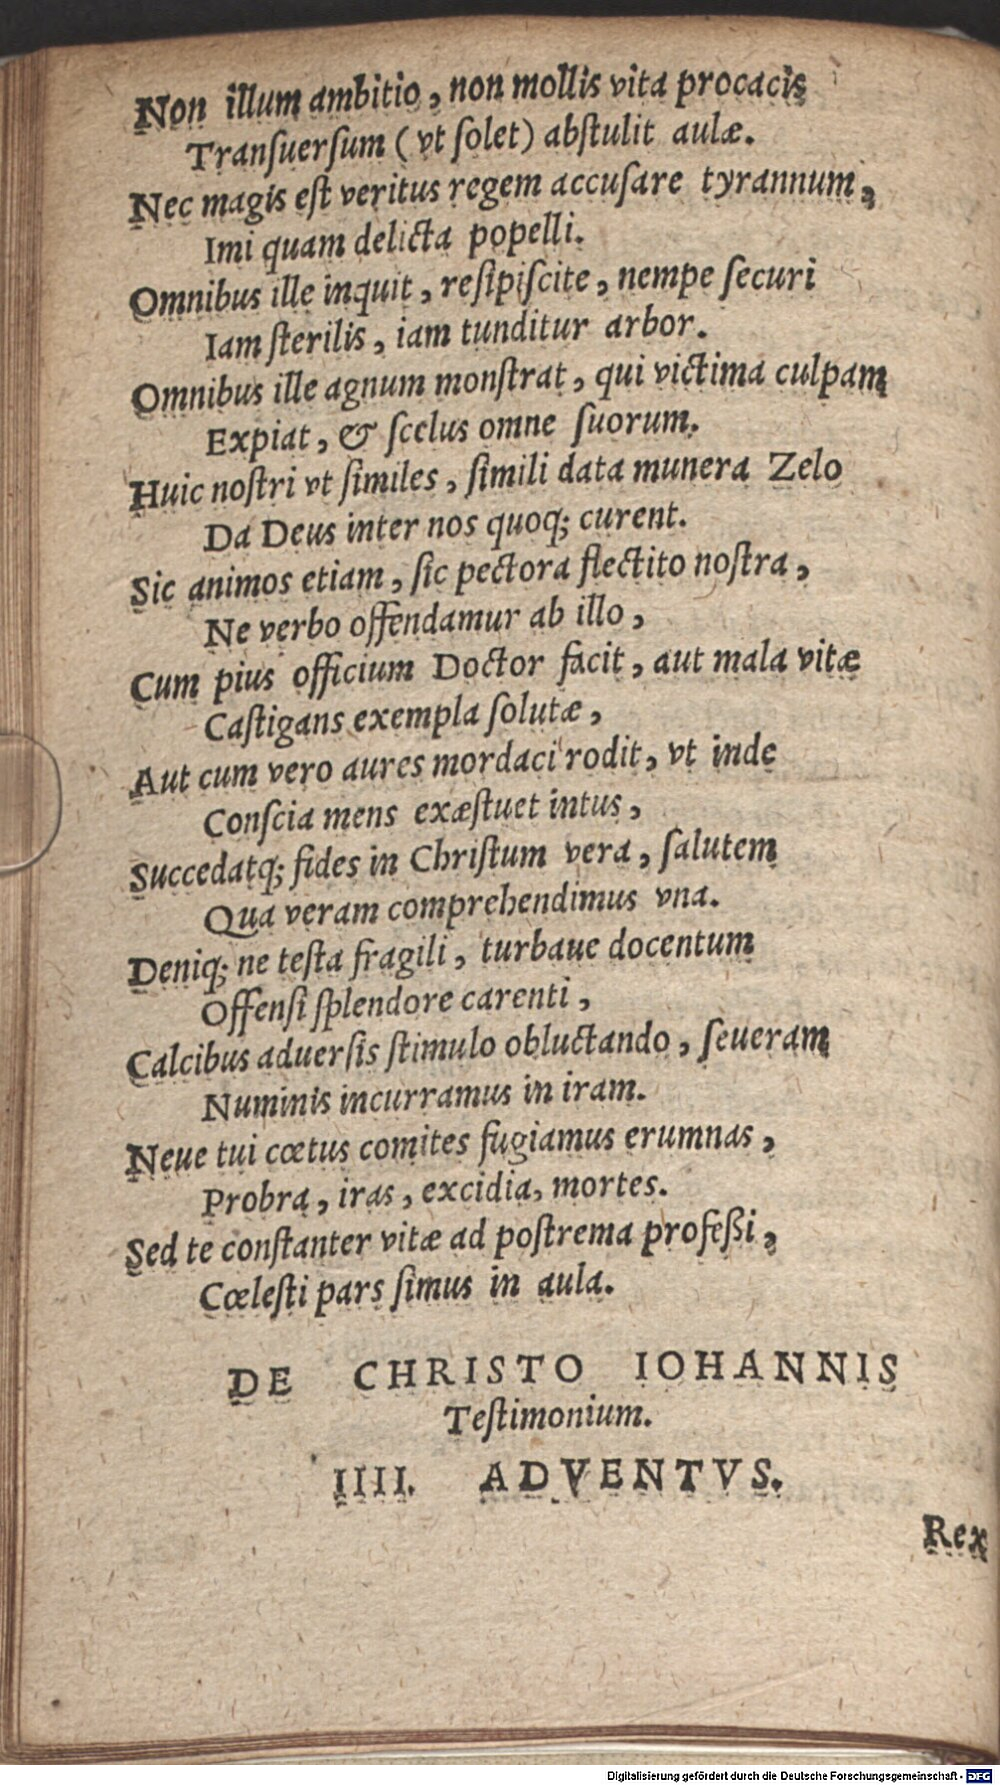 Non illum ambitio, non mollis vita procacis
Tranſuerſum (vt ſolet) abſtulit aulæ.
Nec magis eſt veritus regem accuſare tyrannum,
Imi quam delicta popelli.
Omnibus ille inquit, reſipiſcite, nempe ſecuri
Iam ſterilis, iam tunditur arbor.
Omnibus ille agnum monſtrat, qui victima culpam
Expiat, & ſcelus omne ſuorum.
Huic noſtri vt ſimiles, ſimili data munera Zelo
Da Deus inter nos quoq; curent.
Sic animos etiam, ſic pectora flectito noſtra,
Ne verbo offendamur ab illo,
Cum pius officium Doctor facit, aut mala vitæ
Caſtigans exempla ſolutæ,
Aut cum vero aures mordaci rodit, vt inde
Conſcia mens exæſtuet intus,
Succedatq; fides in Chriſtum vera, ſalutem
Qua veram comprehendimus vna.
Deniq; ne teſta fragili, turbaue docentum
Offenſi ſplendore carenti,
Calcibus aduerſis ſtimulo obluctando, ſeueram
Numinis incurramus in iram.
Neue tui cœtus comites fugiamus erumnas,
Probra, iras, excidia, mortes.
Sed te conſtanter vitæ ad poſtrema profeßi,
Cœleſti pars ſimus in aula.
DE CHRISTO IOHANNIS
Teſtimonium.
IIII. ADVENTVS.
Rex
Digitalisierung gefördert durch die Deutsche Forschungsgemeinschaft - DFG